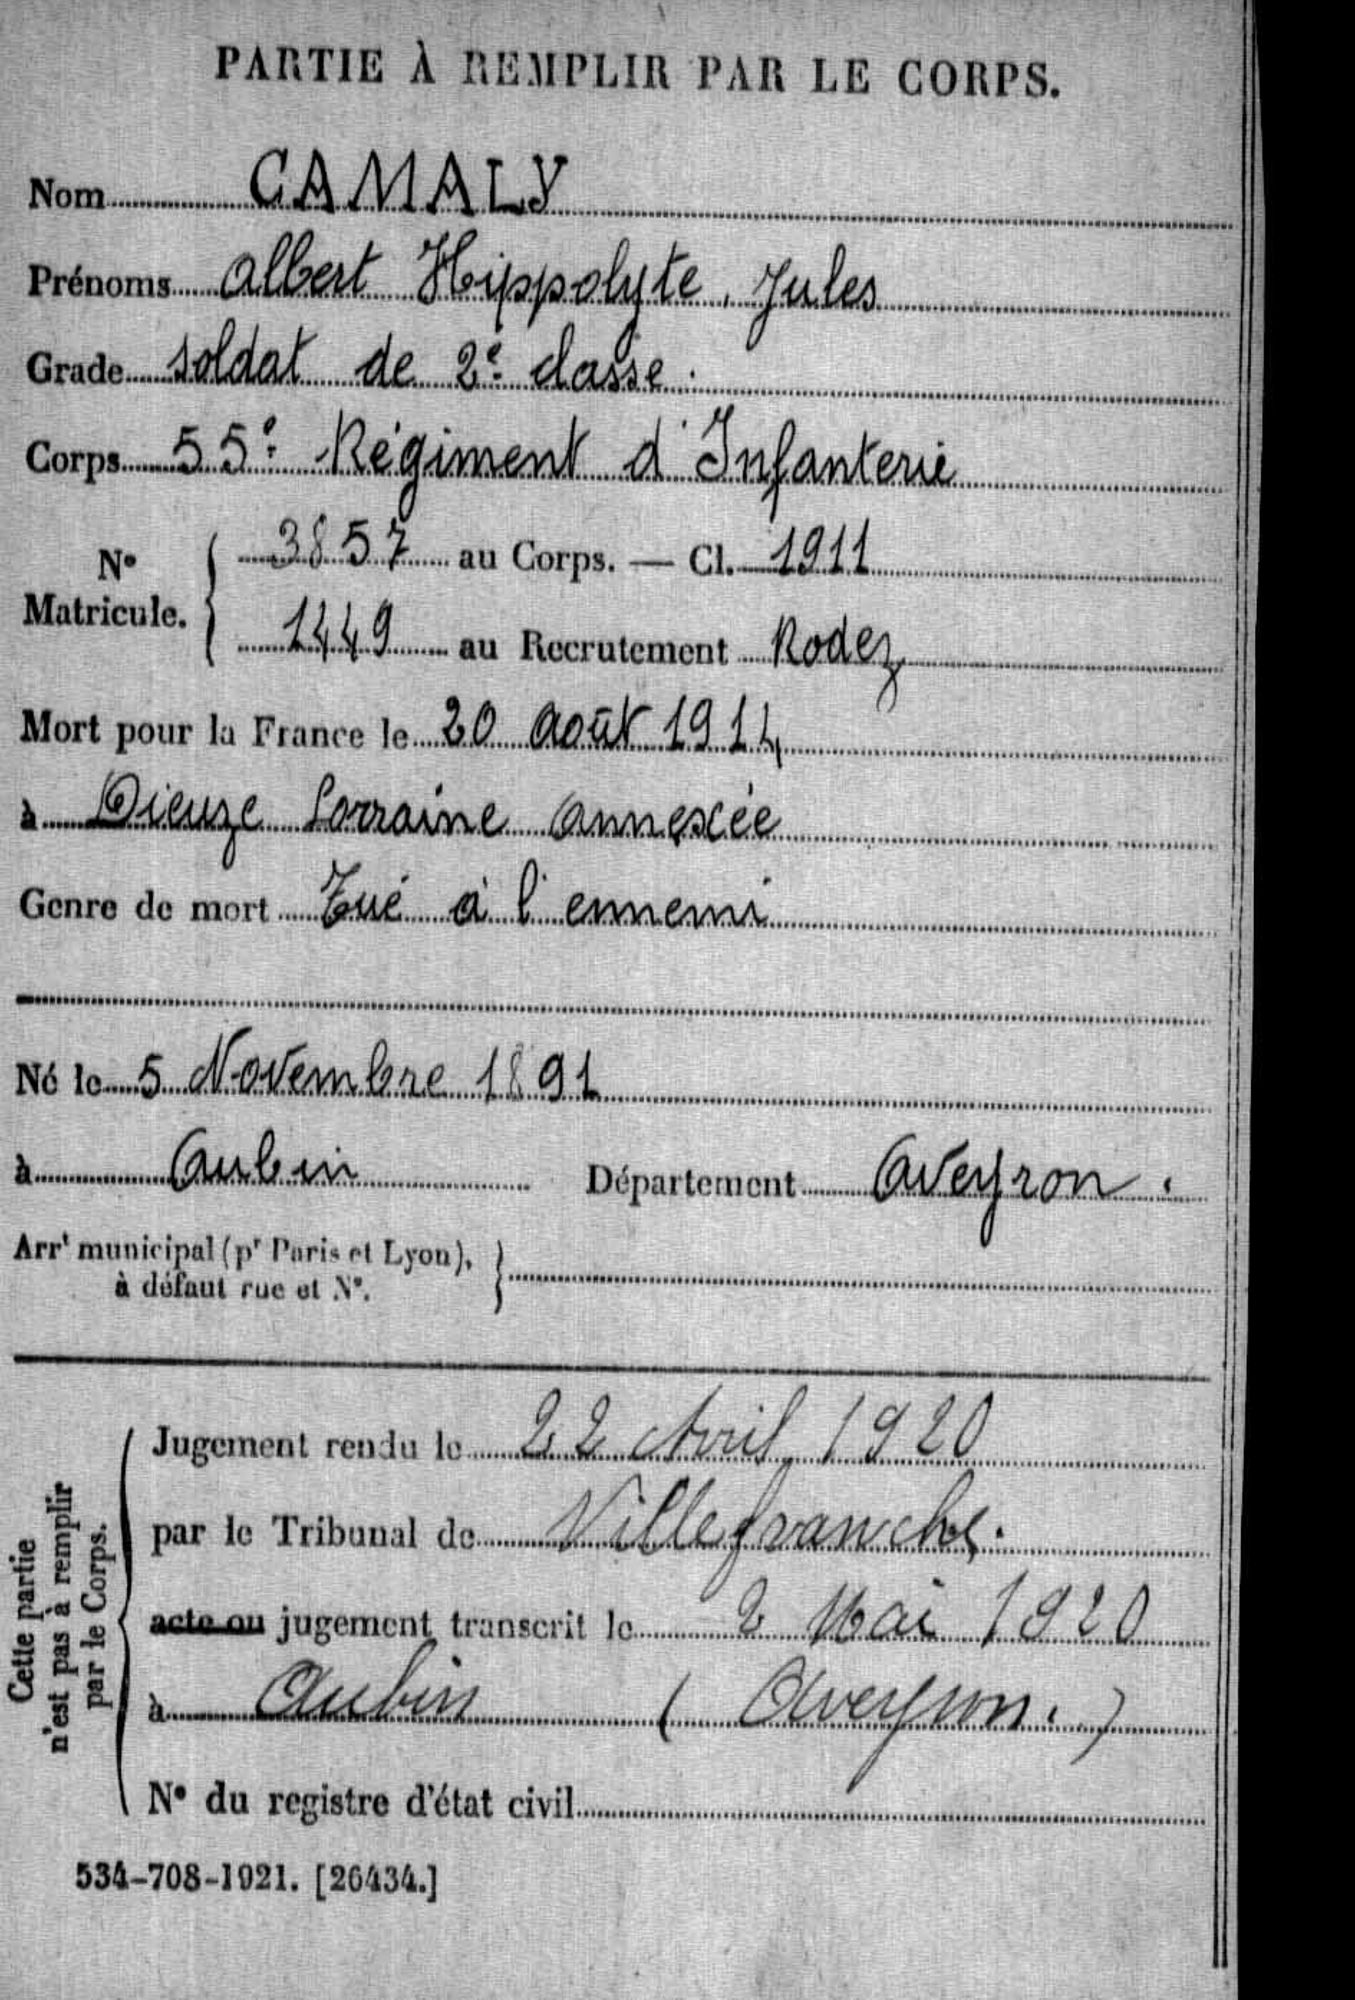 PARTIE À REMPLIR PAR LE CORPS.
Nom CAMALY
Prénoms Albert Hippolyte, Jules
Grade soldat de 2e classe.
Corps 55e Régiment d'Infanterie
No Matricule. { 3857 au Corps. — Cl. 1911
1449 au Recrutement Rodez
Mort pour la France le 20 août 1914
à Dieuze Lorraine Annexée
Genre de mort Tué à l'ennemi
Né le 5 Novembre 1891
à Aubin Département Aveyron.
Arrt municipal (pr Paris et Lyon), à défaut rue et No. }
Cette partie n'est pas à remplir par le Corps.
Jugement rendu le 22 Avril 1920
par le Tribunal de Villefranche.
acte ou jugement transcrit le 2 Mai 1920
à Aubin (Aveyron.)
No du registre d'état civil
534-708-1921. [26434.]